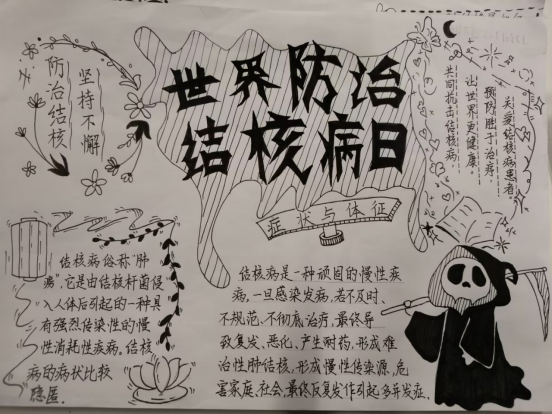 世界防治
结核病日
坚持不懈
防治结核
关爱结核病患者。
预防胜于治疗
让世界更健康。
共同抗击结核病
症状与体征
结核病俗称"肺
痨"。它是由结核杆菌侵
入人体后引起的一种具
有强烈传染性的慢
性消耗性疾病。结核
病的病状比较
隐匿。
结核病是一种顽固的慢性疾
病,一旦感染发病,若不及时、
不规范、不彻底治疗,最终导
致复发、恶化、产生耐药,形成难
治性肺结核,形成慢性传染源,危
害家庭、社会,最终反复发作引起多并发症.